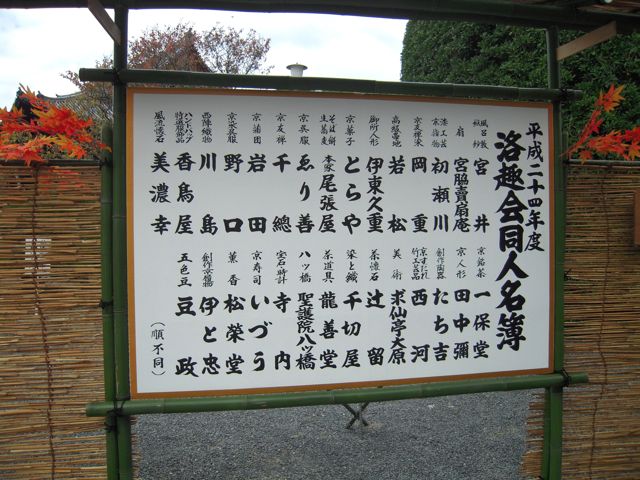 平成二十四年度
洛趣会同人名簿
風呂敷 宮井
扇 宮脇賣扇庵
漆工芸 初瀬川
京友禅染 岡重
高級草履 若松
御所人形 伊東久重
京菓子 とらや
そば餅 生蕎麦 本家尾張屋
京呉服 ゑり善
京友禅 千總
京蒲団 岩田
京染呉服 野口
西陣織物 川島
ハンドバッグ 特選服飾品 香鳥屋
風流懐石 美濃幸
京銘茶 一保堂
京人形 田中彌
創作陶器 たち吉
京すだれ 竹工芸品 西河
美術 求仙亭大原
茶懐石 辻留
染と織 千切屋
茶道具 龍善堂
八ッ橋 聖護院八ッ橋
宝石・時計 寺内
京寿司 いづう
薫香 松栄堂
創作京履物 伊と忠
五色豆 豆政
(順不同)